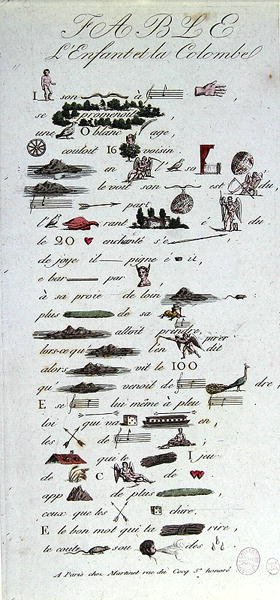 FABLE
L'Enfant et la Colombe
1 son à
se promenoit
une O blanc age,
couloit 16 voisin.
en l' so
le voit son est du
part
l' rant é du
le 20 enchanté s'e
de joye il pigne é it,
e bar par
à sa proie de loin
plus de sa
alloit prendre,
lorsce qu' l'en dit
alors vit le 100
qu' venoit de dre,
E se lui même à pleu
loi qui ns en,
les de
que le 1 jeu
de C de
app de plus
ceux que les chire.
E le bon mot qui la rire,
le coute sou des
A Paris chez Martinet rue du Coq St honoré